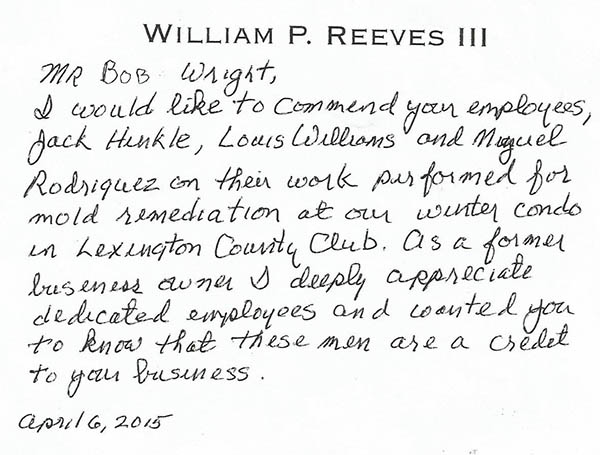 WILLIAM P. REEVES III
MR BOB Wright,
I would like to commend your employees,
Jack Hinkle, Louis Williams and Miguel
Rodriquez on their work purformed for
mold remediation at our winter condo
in Lexington County Club. As a former
business owner I deeply appreciate
dedicated employees and wanted you
to know that these men are a credit
to your business.
April 6, 2015